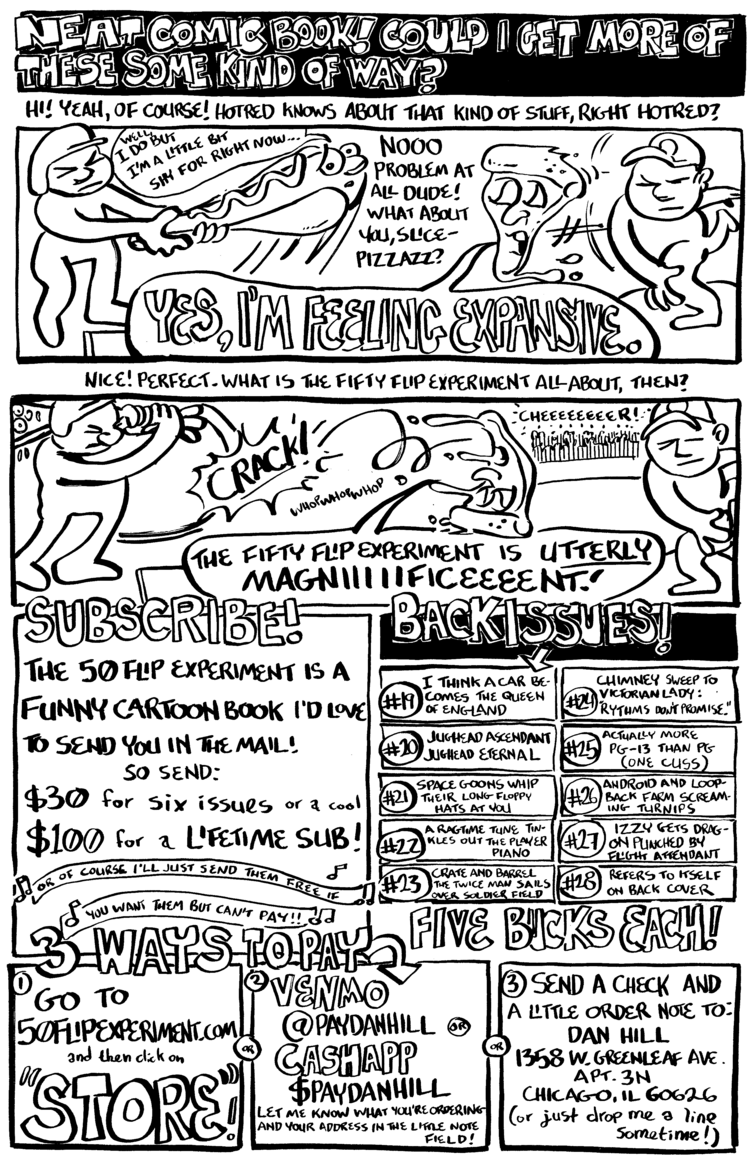 NEAT COMIC BOOK! COULD I GET MORE OF
THESE SOME KIND OF WAY?
HI! YEAH, OF COURSE! HOTRED KNOWS ABOUT THAT KIND OF STUFF, RIGHT HOTRED?
WELL,
I DO BUT
I'M A LITTLE BIT
SHY FOR RIGHT NOW...
NOOO
PROBLEM AT
ALL DUDE!
WHAT ABOUT
YOU, SLICE-
PIZZAZZ?
YES, I'M FEELING EXPANSIVE.
NICE! PERFECT. WHAT IS THE FIFTY FLIP EXPERIMENT ALL ABOUT, THEN?
CRACK!
WHOPWHOPWHOP
CHEEEEEEEER!
THE FIFTY FLIP EXPERIMENT IS UTTERLY
MAGNIIIIIIFICEEEENT!
SUBSCRIBE!
THE 50 FLIP EXPERIMENT IS A
FUNNY CARTOON BOOK I'D LOVE
TO SEND YOU IN THE MAIL!
SO SEND:
$30 for six issues or a cool
$100 for a LIFETIME SUB!
OR OF COURSE I'LL JUST SEND THEM FREE IF
YOU WANT THEM BUT CAN'T PAY!!
BACK ISSUES!
#19
I THINK A CAR BE-
COMES THE QUEEN
OF ENGLAND
#20
JUGHEAD ASCENDANT
JUGHEAD ETERNAL
#21
SPACE GOONS WHIP
THEIR LONG FLOPPY
HATS AT YOU
#22
A RAGTIME TUNE TIN-
KLES OUT THE PLAYER
PIANO
#23
CRATE AND BARREL
THE TWICE MAN SAILS
OVER SOLDIER FIELD
#24
CHIMNEY SWEEP TO
VICTORIAN LADY:
"RYTHMS DON'T PROMISE."
#25
ACTUALLY MORE
PG-13 THAN PG
(ONE CUSS)
#26
ANDROID AND LOOP-
BACK FARM SCREAM-
ING TURNIPS
#27
IZZY GETS DRAG-
ON PUNCHED BY
FLIGHT ATTENDANT
#28
REFERS TO ITSELF
ON BACK COVER
FIVE BUCKS EACH!
3 WAYS TO PAY
1
GO TO
50FLIPEXPERIMENT.COM
and then click on
"STORE"!
OR
2
VENMO
@PAYDANHILL
OR
CASHAPP
$PAYDANHILL
LET ME KNOW WHAT YOU'RE ORDERING
AND YOUR ADDRESS IN THE LITTLE NOTE
FIELD!
OR
3
SEND A CHECK AND
A LITTLE ORDER NOTE TO:
DAN HILL
1358 W. GREENLEAF AVE.
APT. 3N
CHICAGO, IL 60626
(or just drop me a line
sometime!)